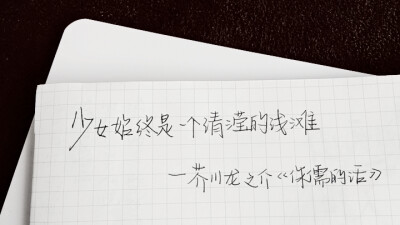 少女始终是一个清滢的浅滩
—芥川龙之介《侏儒的话》